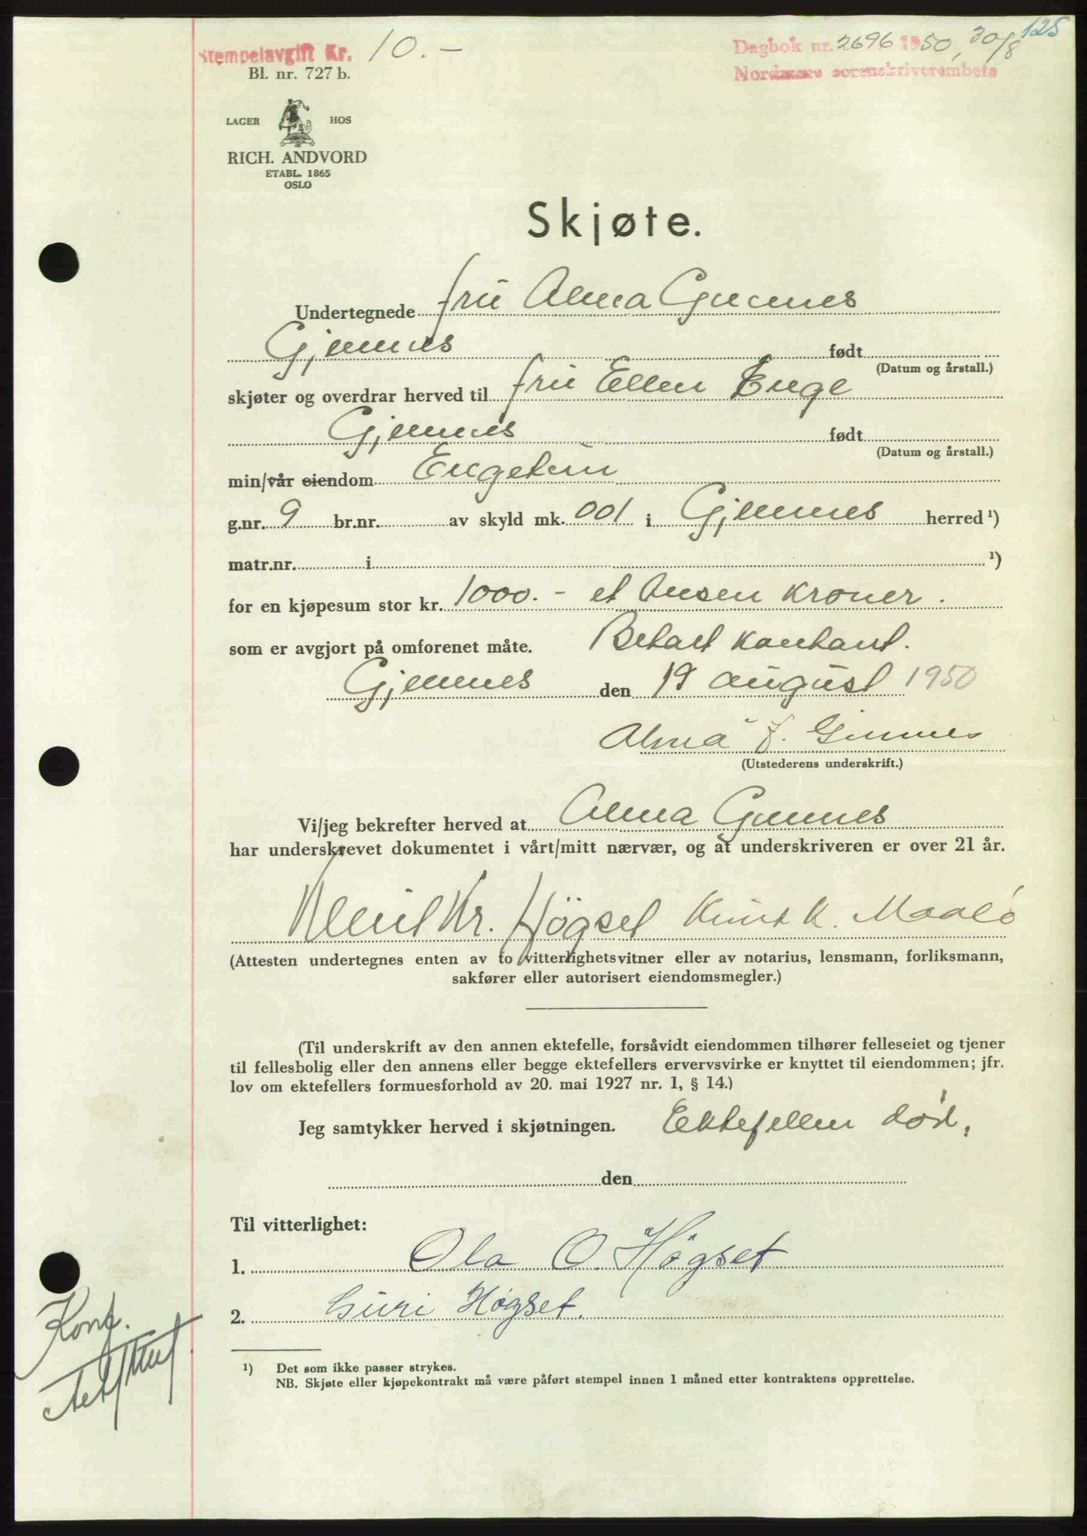 125
Stempelavgift Kr. 10.–
Dagbok nr. 2696 1950, 30/8
Nordmøre sorenskriverembete
Bl. nr. 727 b.
LAGER HOS
RICH. ANDVORD
ETABL. 1865
OSLO
Skjøte.
Undertegnede fru Alma Gimnes
Gjemnes født
(Datum og årstall.)
skjøter og overdrar herved til fru Ellen Enge
Gjemnes født
(Datum og årstall.)
min/vår eiendom Engetun
g.nr. 9 br.nr. av skyld mk. 001 i Gjemnes herred ¹)
matr.nr. i ¹)
for en kjøpesum stor kr. 1000.- et tusen kroner.
som er avgjort på omforenet måte. Betalt kontant.
Gjemnes den 19 august 1950
Alma J. Gimnes
(Utstederens underskrift.)
Vi/jeg bekrefter herved at Alma Gimnes
har underskrevet dokumentet i vårt/mitt nærvær, og at underskriveren er over 21 år.
Kr. Högset Knut K.
(Attesten undertegnes enten av to vitterlighetsvitner eller av notarius, lensmann, forliksmann,
sakfører eller autorisert eiendomsmegler.)
(Til underskrift av den annen ektefelle, forsåvidt eiendommen tilhører felleseiet og tjener
til fellesbolig eller den annens eller begge ektefellers ervervsvirke er knyttet til eiendommen; jfr.
lov om ektefellers formuesforhold av 20. mai 1927 nr. 1, § 14.)
Jeg samtykker herved i skjøtningen. Ektefellen død.
den
Til vitterlighet:
1. Ola O. Högset
2. Guri Högset.
Konf.
¹) Det som ikke passer strykes.
NB. Skjøte eller kjøpekontrakt må være påført stempel innen 1 måned etter kontraktens opprettelse.